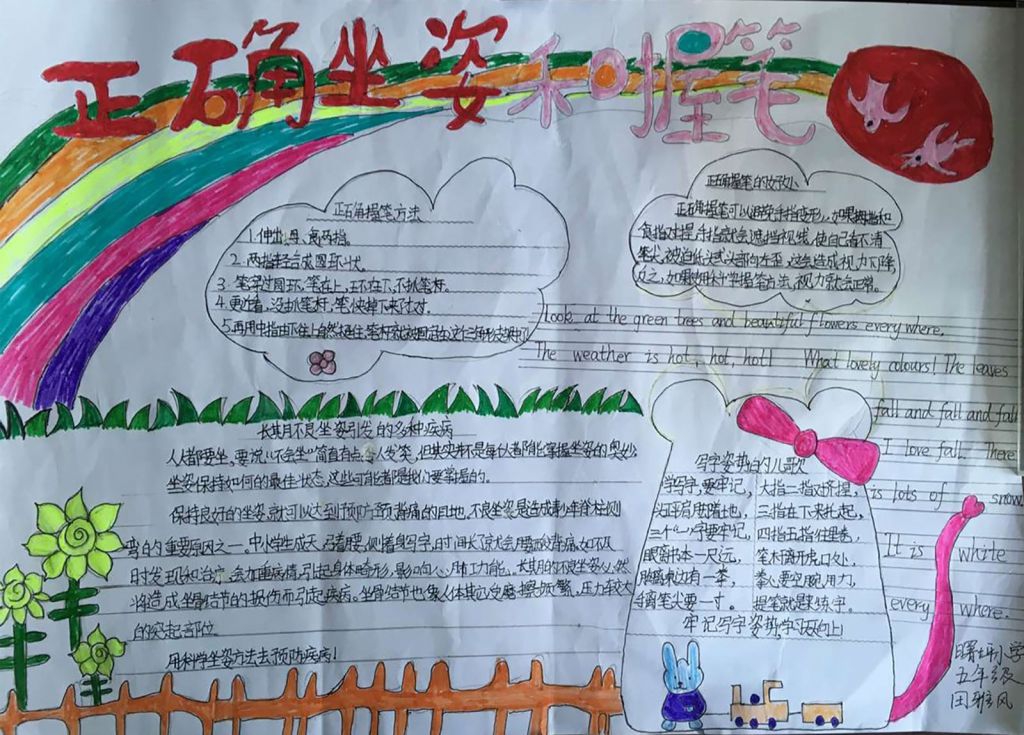 正确坐姿和握笔
正确握笔方法
1.伸出母、食两指。
2.两指轻合成圆环状。
3.笔穿过圆环,笔在上,环在下,不抓笔杆。
4.更近看,没抓笔杆,笔快掉下来才对。
正确握笔的好处
正确握笔可以避免手指变形,如果拇指和
食指对捏,手指就会遮挡视线,使自己看不清
笔尖,被迫低头或头部向左歪,这会造成视力下降
反之,如果使用科学握笔方法,视力就会正常。
Look at the green trees and beautiful flowers everywhere,
The weather is hot, hot, hot! What lovely colours! The leaves
fall and fall and fall
I love fall. There
is lots of snow.
It is white
every where.
长期不良坐姿引发的多种疾病
人人都要坐,要说"不会坐"简直有点令人发笑,但其实并不是每个人都能掌握坐姿的奥妙
坐姿保持如何的最佳状态,这些可能都是我们要掌握的。
保持良好的坐姿就可以达到预防颈指痛的目地。不良坐姿是造成青少年脊柱侧
弯的重要原因之一。中小学生成天弓着腰,侧着身写字,时间长了就会腰酸背痛,如不及
时发现和治疗,会加重病情,引起身体畸形,影响心肺功能。长期的不良坐姿必然
将造成坐骨结节的损伤而引起疾病。坐骨结节也象人体其它皮肤摩擦频繁,压力较大
的突起部位。
用科学坐姿方法去预防疾病!
写字姿势的儿歌
学写字,要牢记,大指二指对挤捏,
头正肩用落地,三指在下来托起,
三个"一"字要牢记,四指五指往里卷,
眼离书本一尺远,笔木离开虎口处,
胸离桌边有一拳,拳心要空腕用力,
手离笔尖要一寸。提笔就是来练字。
牢记写字姿势,学习跃向上!
曙坪小学
五年级
田雅风